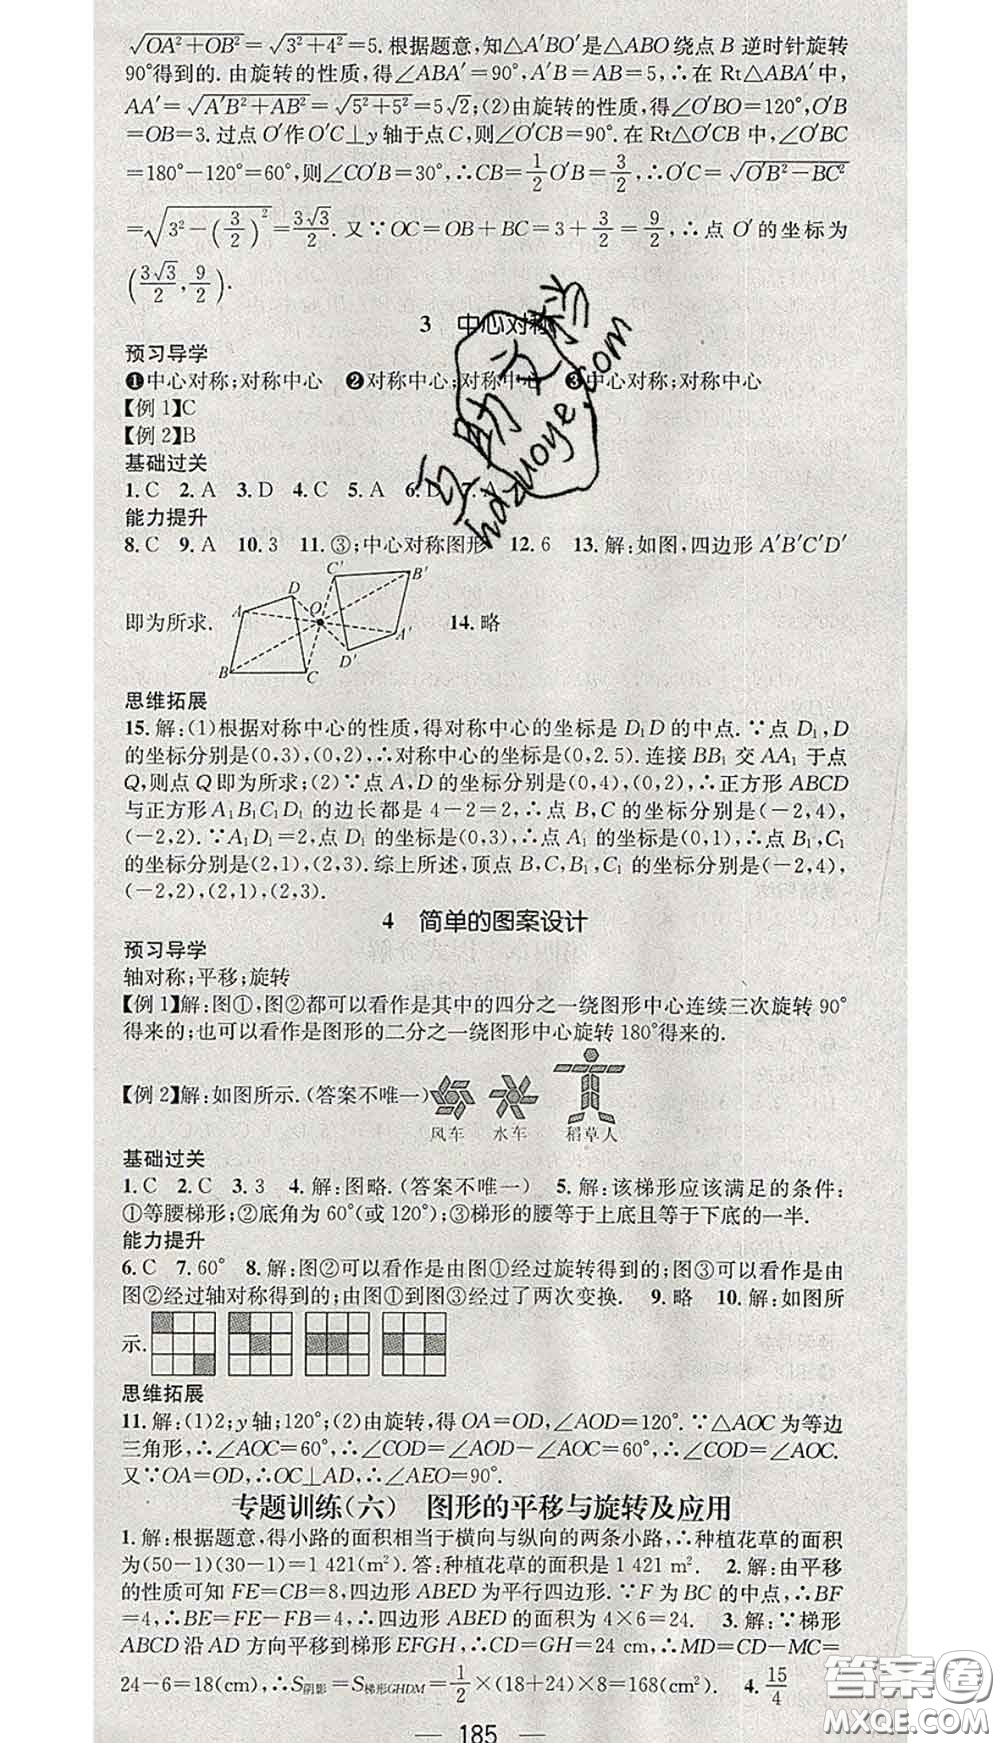 √(OA²+OB²)=√(3²+4²)=5.根据题意,知△A′BO′是△ABO绕点B逆时针旋转
90°得到的.由旋转的性质,得∠ABA′=90°,A′B=AB=5,∴在Rt△ABA′中,
AA′=√(A′B²+AB²)=√(5²+5²)=5√2;(2)由旋转的性质,得∠O′BO=120°,O′B
=OB=3.过点O′作O′C⊥y轴于点C,则∠O′CB=90°.在Rt△O′CB中,∠O′BC
=180°-120°=60°,则∠CO′B=30°,∴CB=1/2 O′B=3/2,∴O′C=√(O′B²-BC²)
=√(3²-(3/2)²)=3√3/2.又∵OC=OB+BC=3+3/2=9/2,∴点O′的坐标为
(3√3/2,9/2).
3 中心对称
预习导学
❶中心对称;对称中心 ❷对称中心;对称中心 ❸中心对称;对称中心
【例1】C
【例2】B
基础过关
1.C 2.A 3.D 4.C 5.A 6.D 7.A
能力提升
8.C 9.A 10.3 11.③;中心对称图形 12.6 13.解:如图,四边形A′B′C′D′
即为所求. A B C D O A′ B′ C′ D′ 14.略
思维拓展
15.解:(1)根据对称中心的性质,得对称中心的坐标是D₁D的中点.∵点D₁,D
的坐标分别是(0,3),(0,2),∴对称中心的坐标是(0,2.5).连接BB₁交AA₁于点
Q,则点Q即为所求;(2)∵点A,D的坐标分别是(0,4),(0,2),∴正方形ABCD
与正方形A₁B₁C₁D₁的边长都是4-2=2,∴点B,C的坐标分别是(-2,4),
(-2,2).∵A₁D₁=2,点D₁的坐标是(0,3),∴点A₁的坐标是(0,1),∴点B₁,C₁
的坐标分别是(2,1),(2,3).综上所述,顶点B,C,B₁,C₁的坐标分别是(-2,4),
(-2,2),(2,1),(2,3).
4 简单的图案设计
预习导学
轴对称;平移;旋转
【例1】解:图①,图②都可以看作是其中的四分之一绕图形中心连续三次旋转90°
得来的;也可以看作是图形的二分之一绕图形中心旋转180°得来的.
【例2】解:如图所示.(答案不唯一)
风车 水车 稻草人
基础过关
1.C 2.C 3.3 4.解:图略.(答案不唯一) 5.解:该梯形应该满足的条件:
①等腰梯形;②底角为60°(或120°);③梯形的腰等于上底且等于下底的一半.
能力提升
6.C 7.60° 8.解:图②可以看作是由图①经过旋转得到的;图③可以看作是由
图②经过轴对称得到的;由图①到图③经过了两次变换. 9.略 10.解:如图所
示.
思维拓展
11.解:(1)2;y轴;120°;(2)由旋转,得OA=OD,∠AOD=120°.∵△AOC为等边
三角形,∴∠AOC=60°,∴∠COD=∠AOD-∠AOC=60°,∴∠AOC=∠COD.
又∵OA=OD,∴OC⊥AD,∴∠AEO=90°.
专题训练(六) 图形的平移与旋转及应用
1.解:根据题意,得小路的面积相当于横向与纵向的两条小路,∴种植花草的面积
为(50-1)(30-1)=1 421(m²).答:种植花草的面积是1 421 m². 2.解:由平移
的性质可知FE=CB=8,四边形ABED为平行四边形.∵F为BC的中点,∴BF
=4,∴BE=FE-FB=4,∴四边形ABED的面积为4×6=24. 3.解:∵梯形
ABCD沿AD方向平移到梯形EFGH,∴CD=GH=24 cm,∴MD=CD-MC=
24-6=18(cm),∴S阴影=S梯形GHDM=1/2×(18+24)×8=168(cm²). 4.15/4
— 185 —
互助文档
hdzuoye.com
答案圈
MXQE.COM